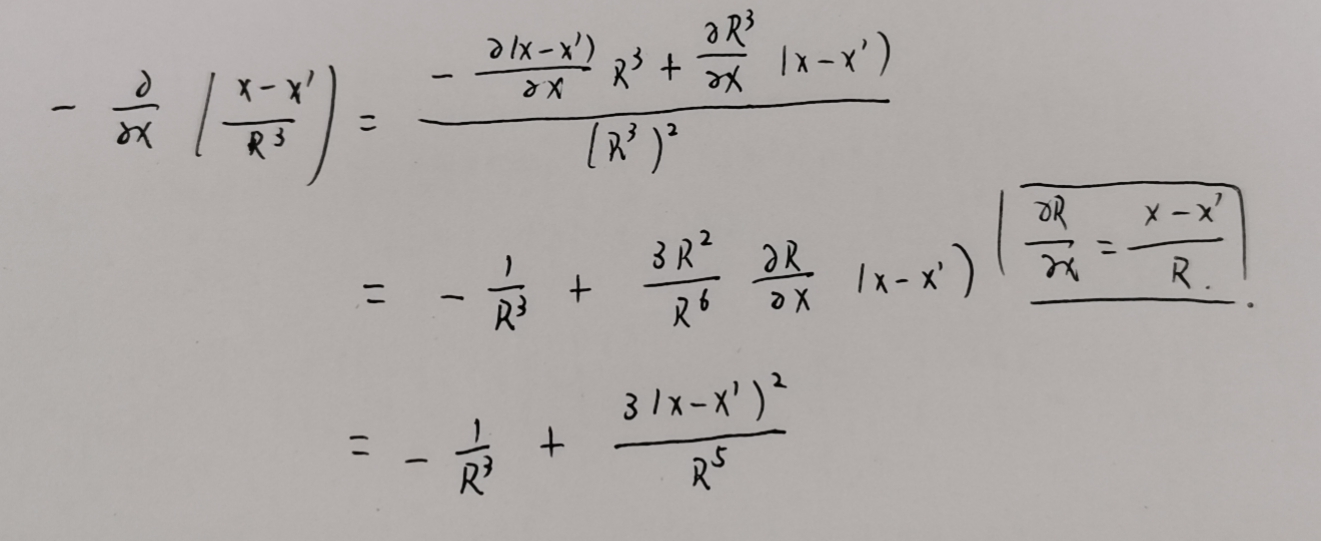 - ∂/∂x ( (x-x')/R³ ) = ( - ∂(x-x')/∂x R³ + ∂R³/∂x (x-x') ) / (R³)²
= - 1/R³ + 3R²/R⁶ ∂R/∂x (x-x') ( ∂R/∂x = (x-x')/R. ) .
= - 1/R³ + 3(x-x')²/R⁵